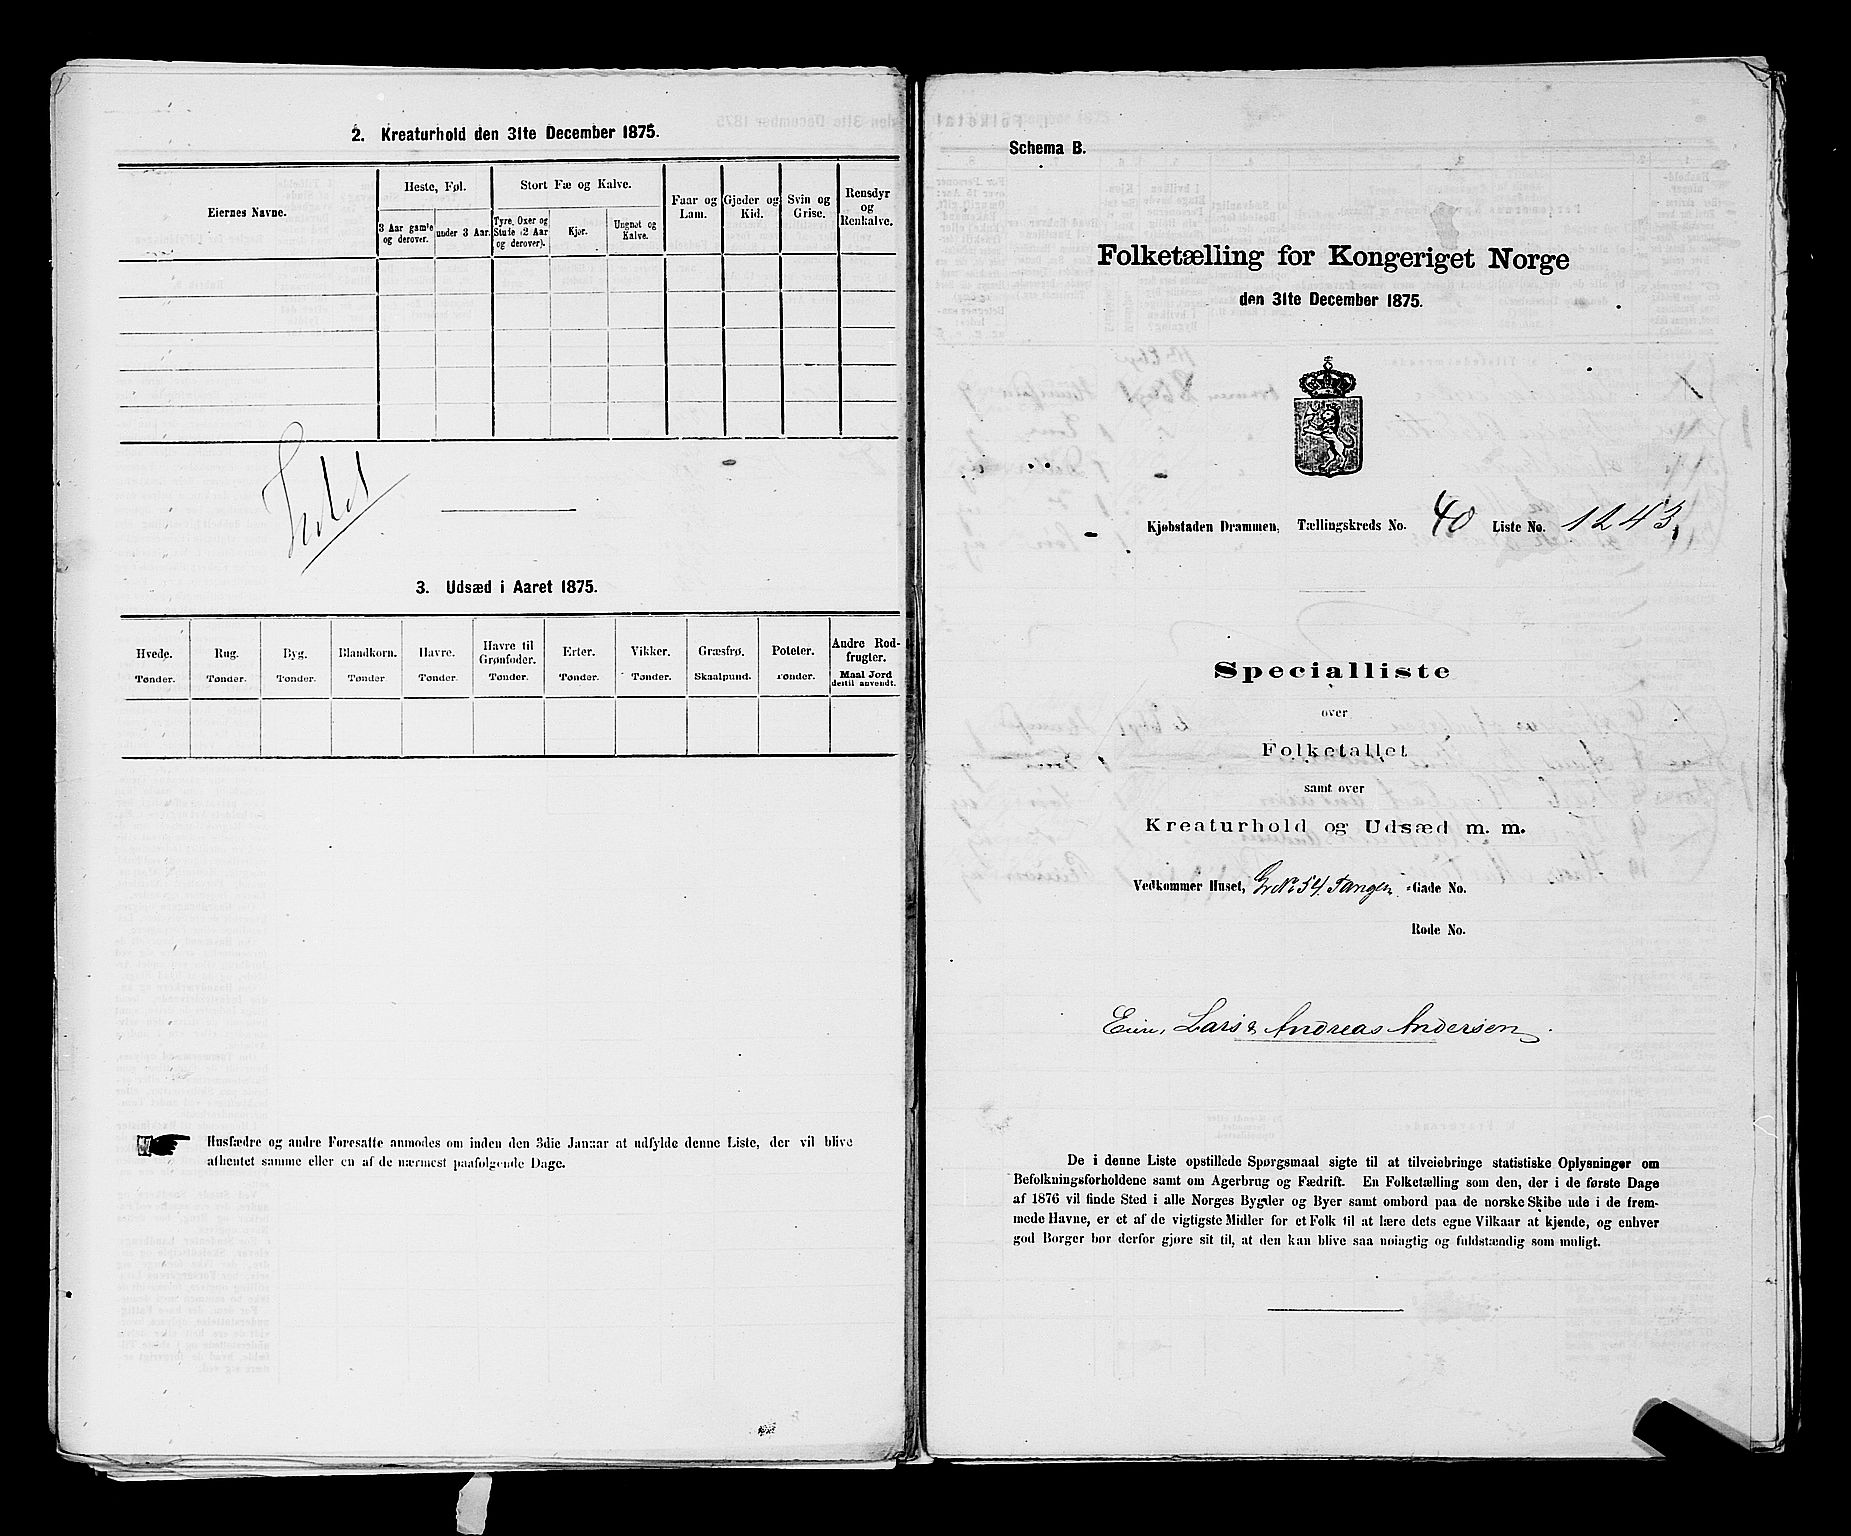 2. Kreaturhold den 31te December 1875.
Eiernes Navne.
Heste, Føl.
Stort Fæ og Kalve.
Faar og Lam.
Gjeder og Kid.
Svin og Grise.
Rensdyr og Renkalve.
3 Aar gamle og derover.
under 3 Aar.
Tyre, Oxer og Stude (2 Aar og derover).
Kjør.
Ungnøt og Kalve.
3. Udsæd i Aaret 1875.
Hvede. Tønder.
Rug. Tønder.
Byg. Tønder.
Blandkorn. Tønder.
Havre. Tønder.
Havre til Grønfoder. Tønder.
Erter. Tønder.
Vikker. Tønder.
Græsfrø. Skaalpund.
Poteter. Tønder.
Andre Rodfrugter. Maal Jord dertil anvendt.
Husfædre og andre Foresatte anmodes om inden den 3die Januar at udfylde denne Liste, der vil blive
afhentet samme eller en af de nærmest paafølgende Dage.
Schema B.
Folketælling for Kongeriget Norge
den 31te December 1875.
Kjøbstaden Drammen, Tællingskreds No. 40 Liste No. 1243,
Specialliste
over
Folketallet
samt over
Kreaturhold og Udsæd m. m.
Vedkommer Huset, Gr No 54 Tangen -Gade No.
Rode No.
Eiere, Lars & Andreas Andersen
De i denne Liste opstillede Spørgsmaal sigte til at tilveiebringe statistiske Oplysninger om
Befolkningsforholdene samt om Agerbrug og Fædrift. En Folketælling som den, der i de første Dage
af 1876 vil finde Sted i alle Norges Bygder og Byer samt ombord paa de norske Skibe ude i de frem-
mede Havne, er et af de vigtigste Midler for et Folk til at lære dets egne Vilkaar at kjende, og enhver
god Borger bør derfor gjøre sit til, at den kan blive saa nøiagtig og fuldstændig som muligt.